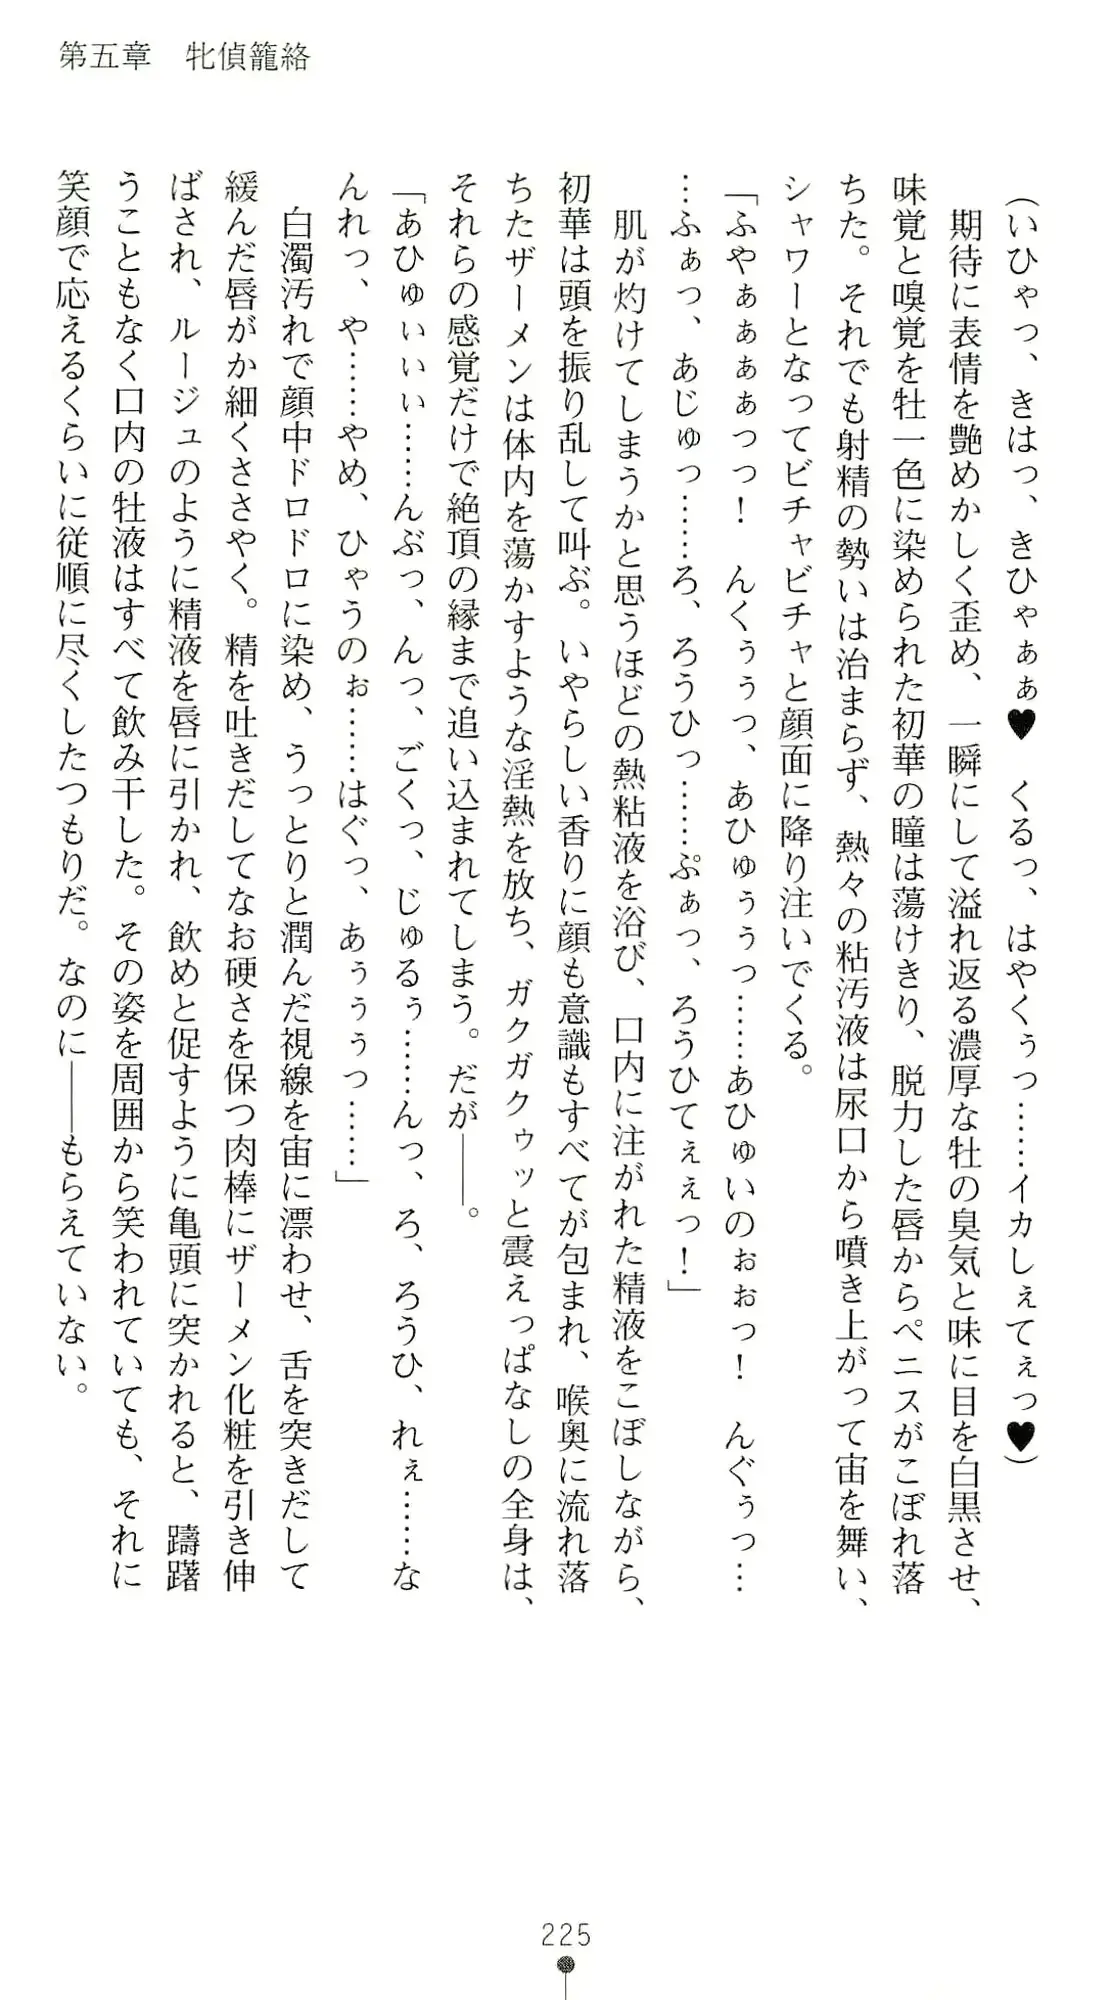 第五章　牝偵籠絡
(いひゃっ、きはっ、きひゃぁぁ♥　くるっ、はやくぅっ……イカしぇてぇっ♥)
　期待に表情を艶めかしく歪め、一瞬にして溢れ返る濃厚な牡の臭気と味に目を白黒させ、
味覚と嗅覚を牡一色に染められた初華の瞳は蕩けきり、脱力した唇からペニスがこぼれ落
ちた。それでも射精の勢いは治まらず、熱々の粘汚液は尿口から噴き上がって宙を舞い、
シャワーとなってビチャビチャと顔面に降り注いでくる。
「ふやぁぁぁぁっっ！　んくぅぅっ、あひゅぅぅっ……あひゅいのぉぉっ！　んぐぅっ…
…ふぁっ、あじゅっ……ろ、ろうひっ……ぷぁっ、ろうひてぇぇっ！」
　肌が灼けてしまうかと思うほどの熱粘液を浴び、口内に注がれた精液をこぼしながら、
初華は頭を振り乱して叫ぶ。いやらしい香りに顔も意識もすべてが包まれ、喉奥に流れ落
ちたザーメンは体内を蕩かすような淫熱を放ち、ガクガクゥッと震えっぱなしの全身は、
それらの感覚だけで絶頂の縁まで追い込まれてしまう。だが――。
「あひゅぃぃぃ……んぶっ、んっ、ごくっ、じゅるぅ……んっ、ろ、ろうひ、れぇ……な
んれっ、や……やめ、ひゃうのぉ……はぐっ、あぅぅぅっ……」
　白濁汚れで顔中ドロドロに染め、うっとりと潤んだ視線を宙に漂わせ、舌を突きだして
緩んだ唇がか細くささやく。精を吐きだしてなお硬さを保つ肉棒にザーメン化粧を引き伸
ばされ、ルージュのように精液を唇に引かれ、飲めと促すように亀頭に突かれると、躊躇
うこともなく口内の牡液はすべて飲み干した。その姿を周囲から笑われていても、それに
笑顔で応えるくらいに従順に尽くしたつもりだ。なのに――もらえていない。
225